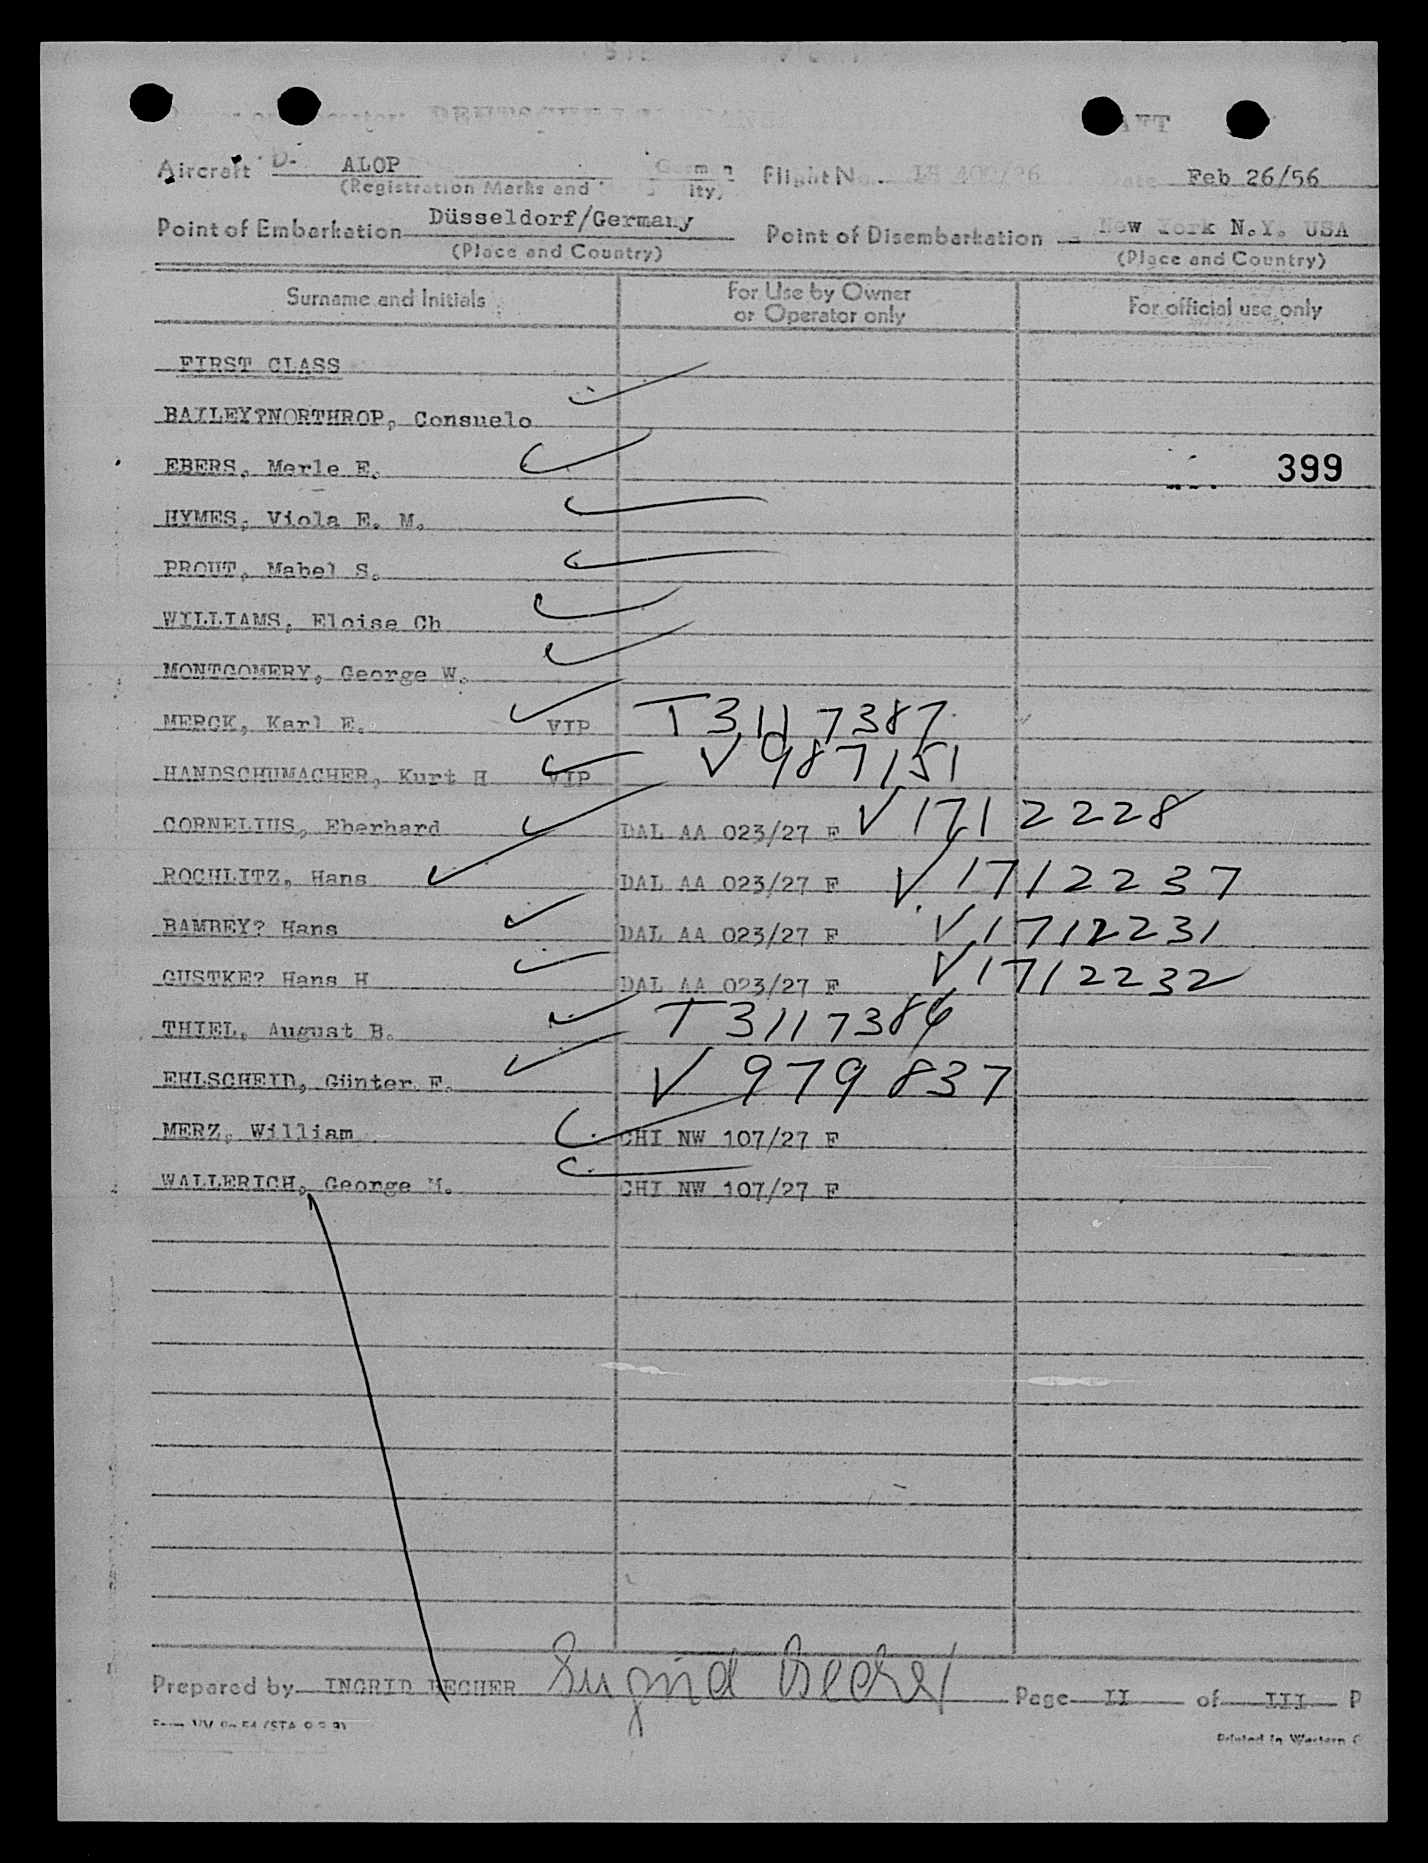 Aircraft D- ALOP Flight No. LH 400/26 Date Feb 26/56
(Registration Marks and
Point of Embarkation Düsseldorf/Germany Point of Disembarkation New York N.Y. USA
(Place and Country) (Place and Country)
Surname and Initials For Use by Owner or Operator only For official use only
FIRST CLASS
BAILEY?NORTHROP, Consuelo
EBERS, Merle E. 399
HYMES, Viola E. M.
PROUT, Mabel S.
WILLIAMS, Eloise Ch
MONTGOMERY, George W.
MERCK, Karl E. VIP T 3117387
HANDSCHUMACHER, Kurt H VIP V 987151
CORNELIUS, Eberhard DAL AA 023/27 F V 1712228
ROCHLITZ, Hans DAL AA 023/27 F V 1712237
BAMBEY? Hans DAL AA 023/27 F V 1712231
GUSTKE? Hans H DAL AA 023/27 F V 1712232
THIEL, August B. T 3117386
EHLSCHEID, Günter F. V 979837
MERZ, William CHI NW 107/27 F
WALLERICH, George M. CHI NW 107/27 F
Prepared by INGRID BECHER Ingrid Becher Page II of III P
Printed in Western G